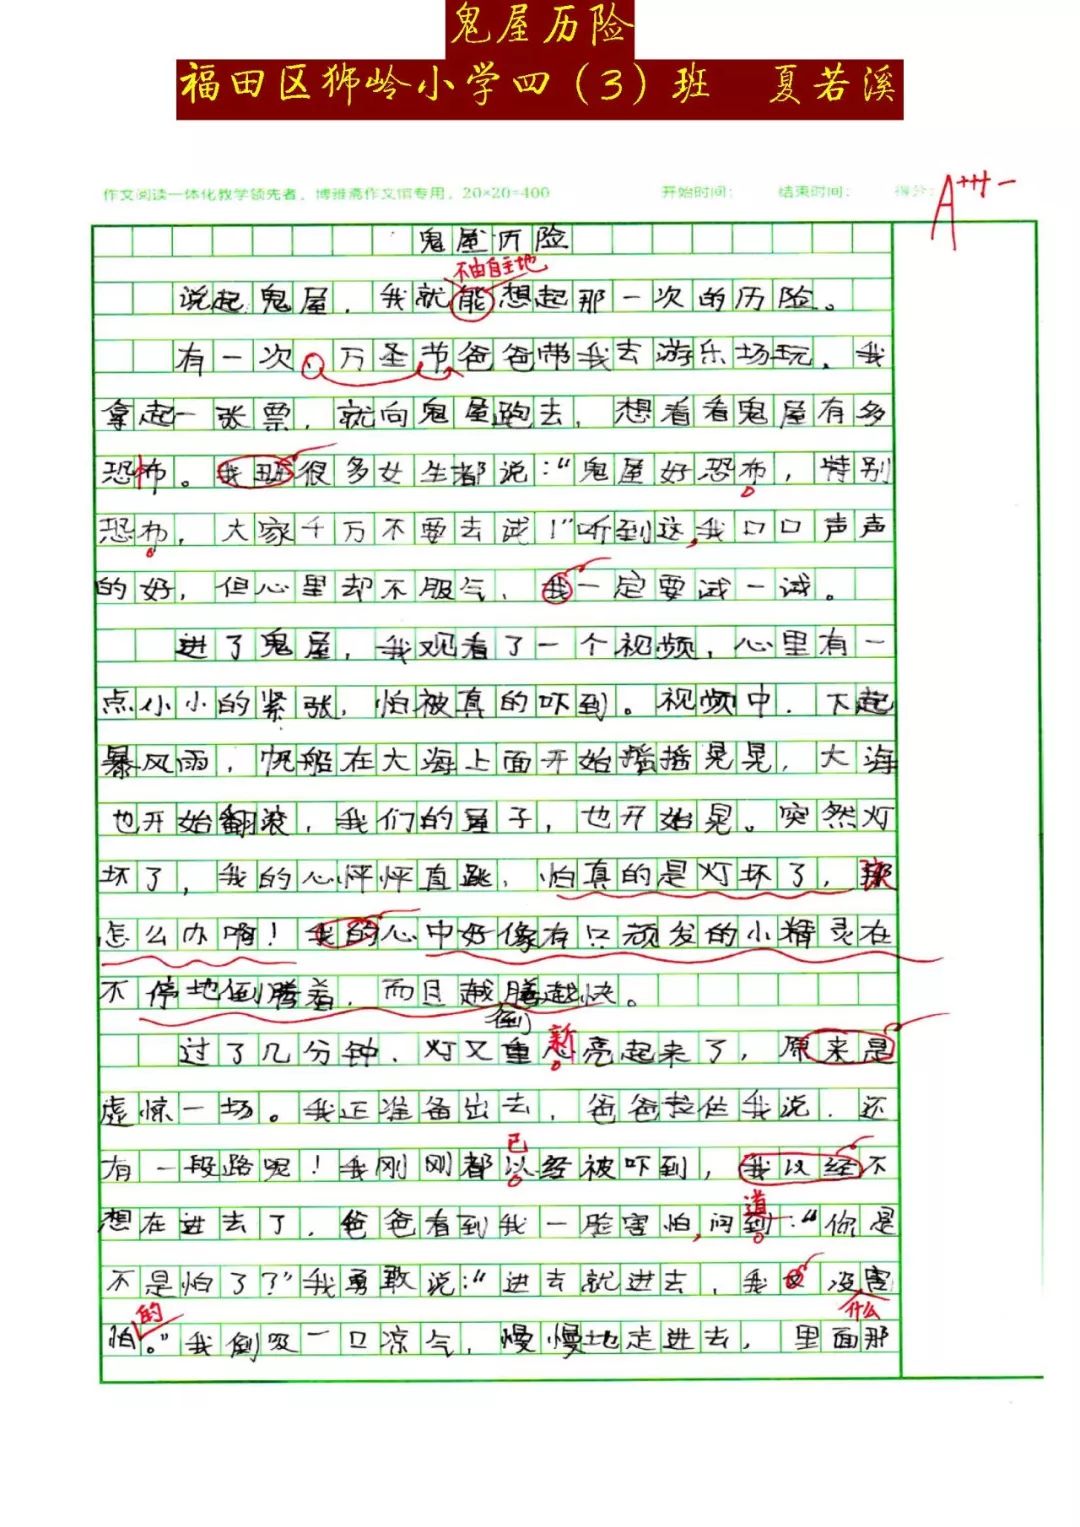 鬼屋历险
福田区狮岭小学四（3）班 夏若溪
作文阅读一体化教学领先者，博雅斋作文馆专用，20×20=400 开始时间： 结束时间： 得分：
A+++-
鬼屋历险
不由自主地
说起鬼屋，我就能想起那一次的历险。
有一次，万圣节爸爸带我去游乐场玩，我
拿起一张票，就向鬼屋跑去，想看看鬼屋有多
恐怖。我班很多女生都说：“鬼屋好恐布，特别
恐布，大家千万不要去试！”听到这，我口口声声
的好，但心里却不服气，我一定要试一试。
进了鬼屋，我观看了一个视频，心里有一
点小小的紧张，怕被真的吓到。视频中，下起
暴风雨，帆船在大海上面开始摇摇晃晃，大海
也开始翻滚，我们的屋子，也开始晃。突然灯
坏了，我的心怦怦直跳，怕真的是灯坏了，那
怎么办啊！我的心中好像有只顽发的小精灵在
不停地倒腾着，而且越腾越快。
倒
新
过了几分钟，灯又重心亮起来了，原来是
虚惊一场。我正准备出去，爸爸拉住我说，还
已
有一段路呢！我刚刚都以经被吓到，我以经不
道
想在进去了，爸爸看到我一脸害怕，问到：“你是
不是怕了？”我勇敢说：“进去就进去，我又没害
的 什么
怕。”我倒吸一口凉气，慢慢地走进去，里面那